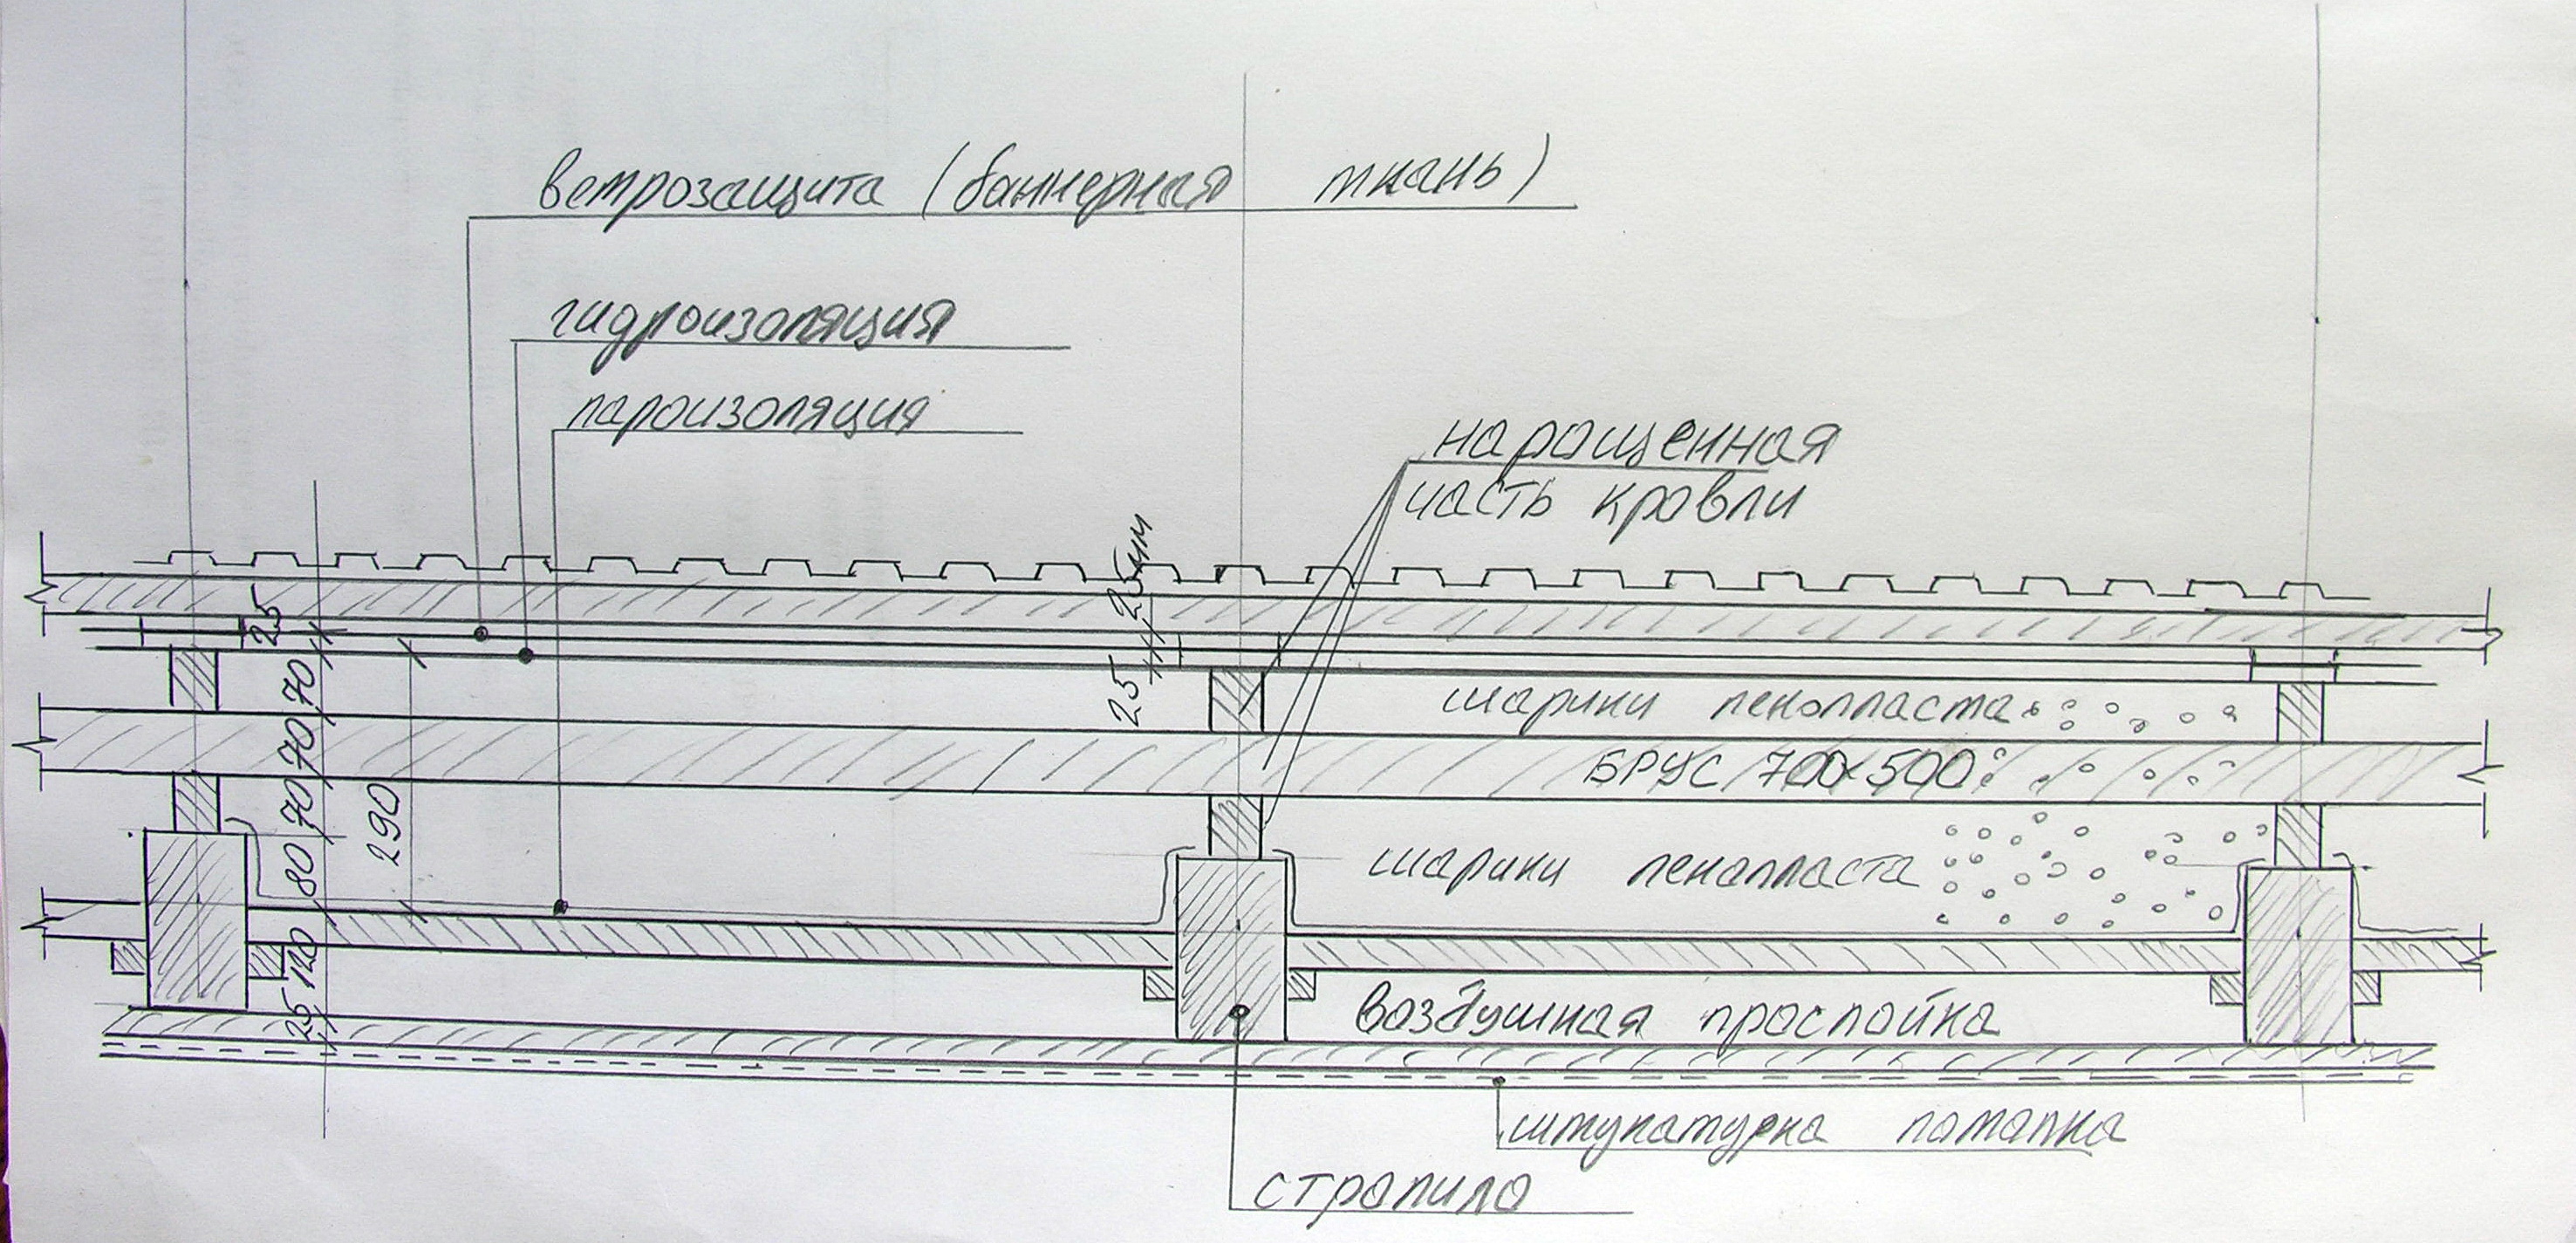 ветрозащита (баннерная ткань)
гидроизоляция
пароизоляция
нарощенная
часть кровли
25мм
25
25
70
70
70
80
290
120
25
шарики пенопласта
БРУС 700х500
шарики пенопласта
воздушная прослойка
штукатурка потолка
стропило